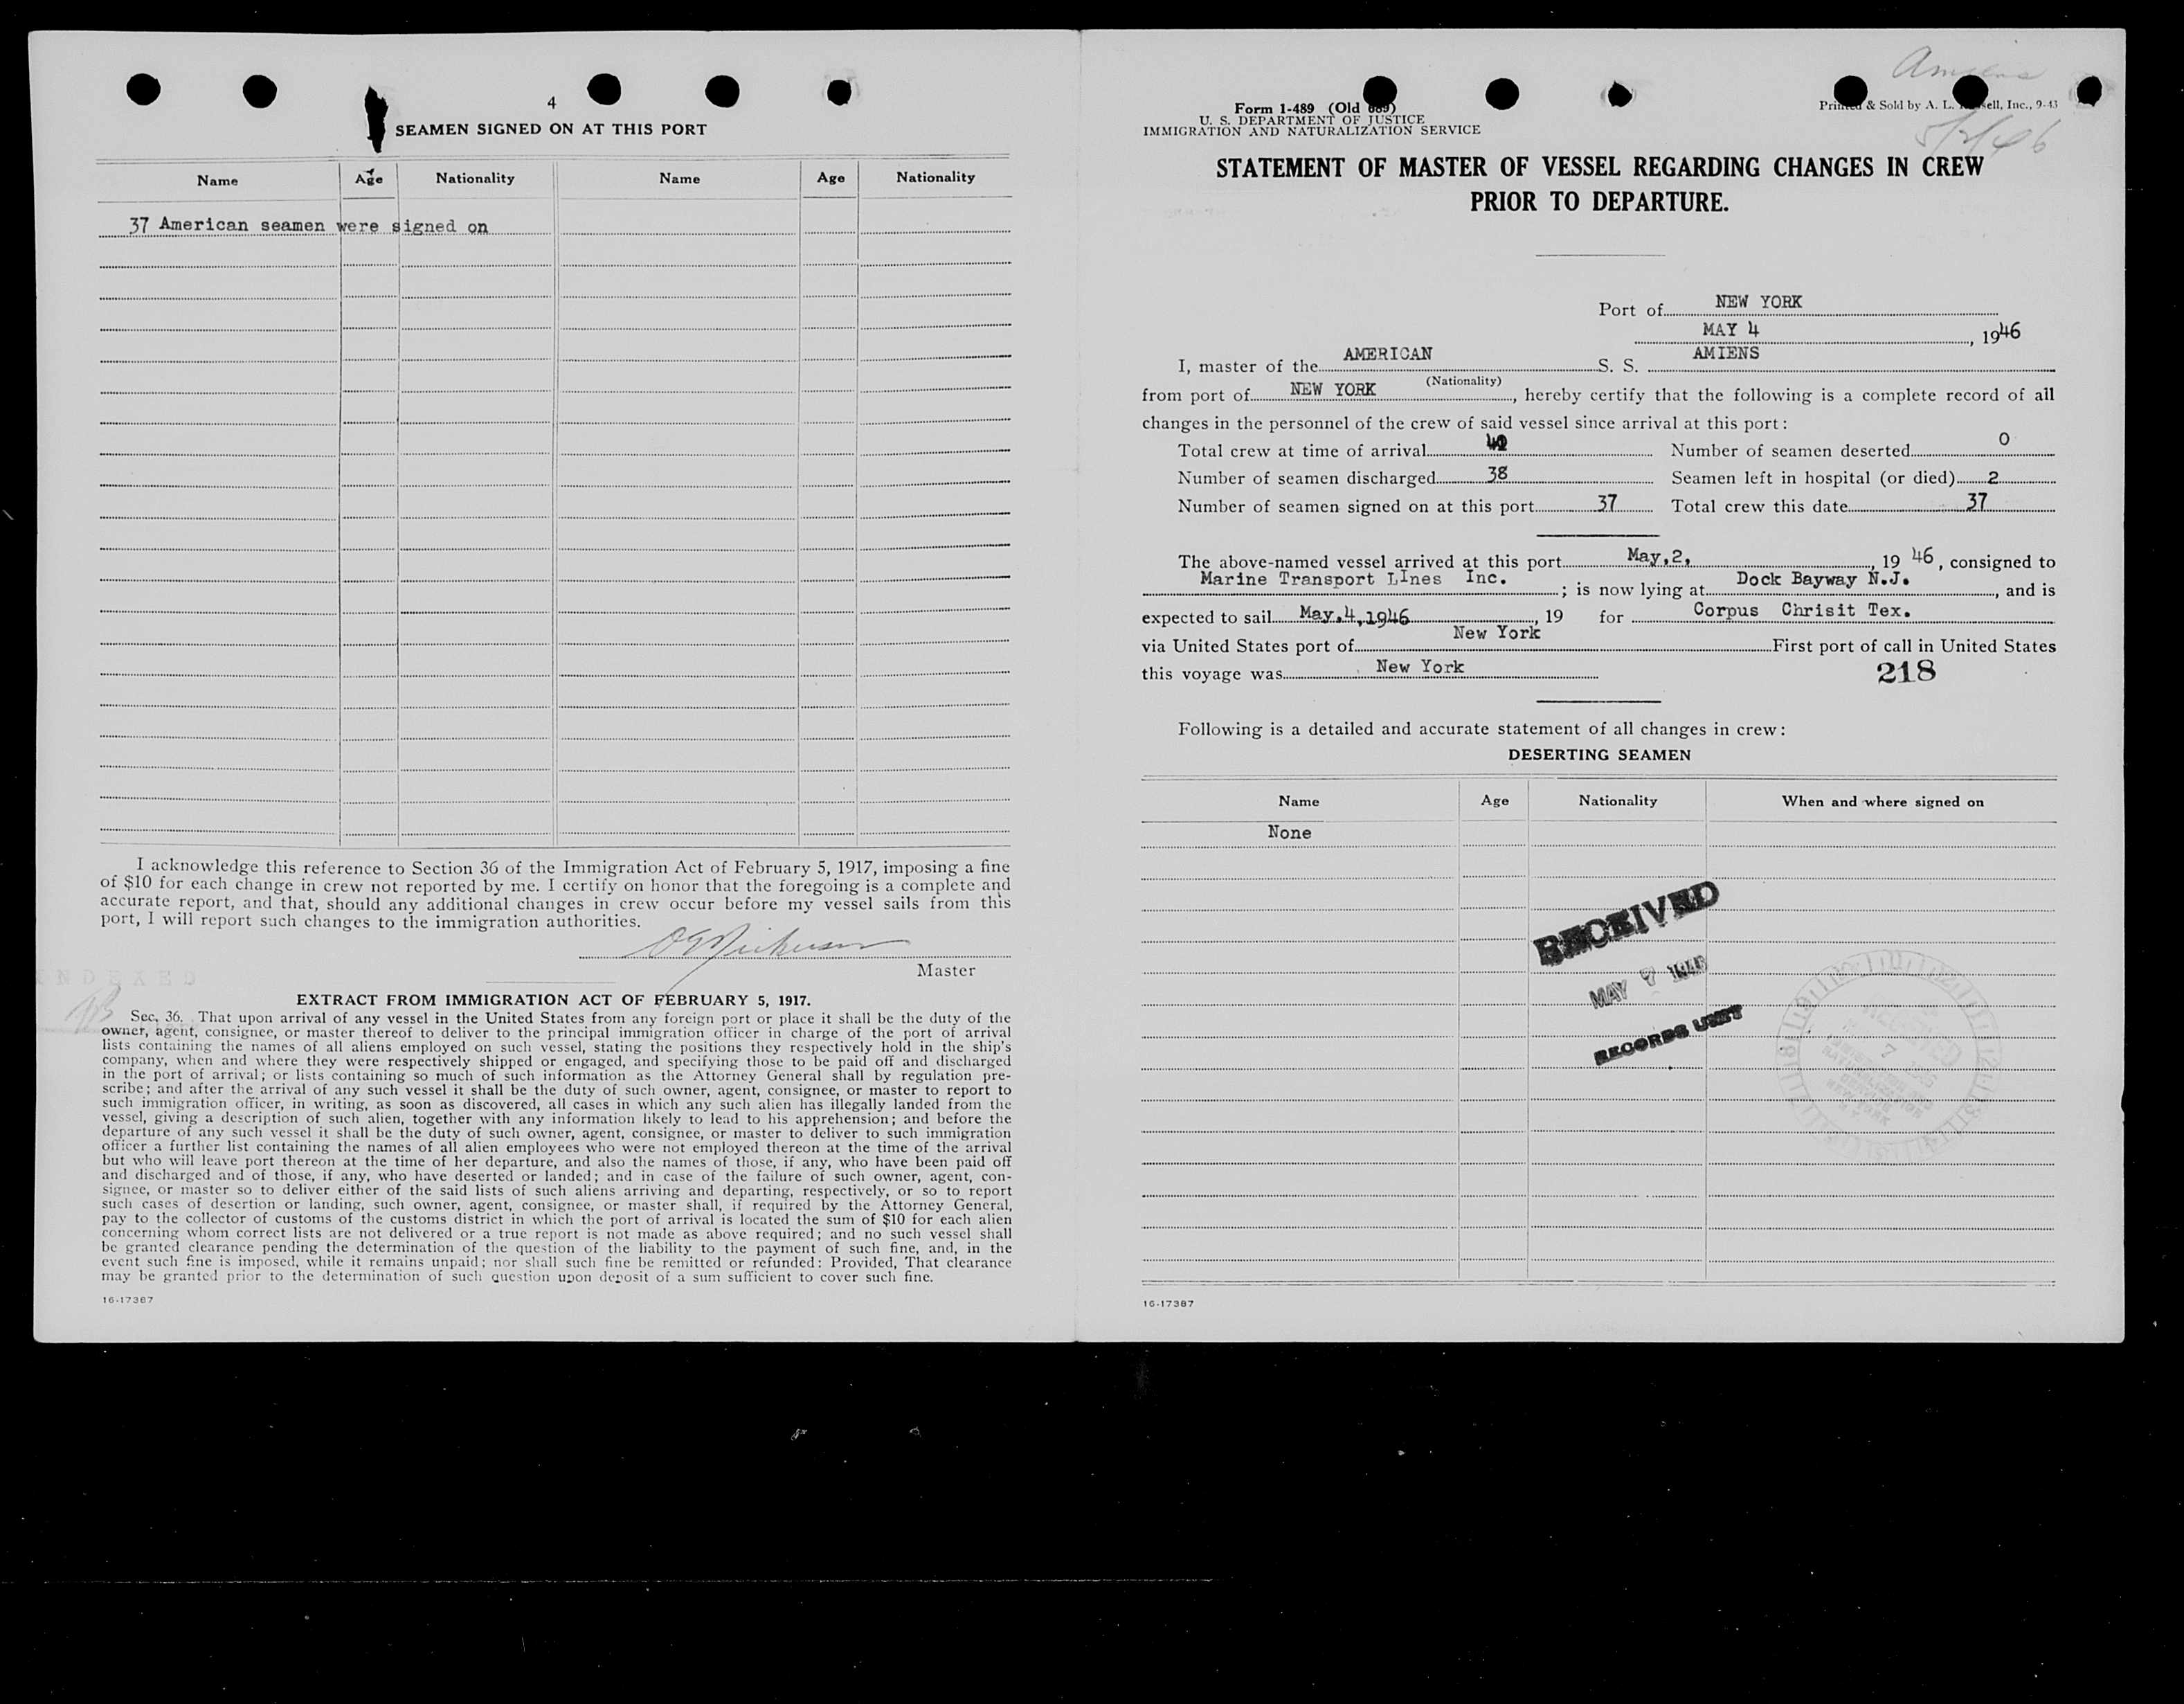 4
SEAMEN SIGNED ON AT THIS PORT
Name Age Nationality Name Age Nationality
37 American seamen were signed on
I acknowledge this reference to Section 36 of the Immigration Act of February 5, 1917, imposing a fine
of $10 for each change in crew not reported by me. I certify on honor that the foregoing is a complete and
accurate report, and that, should any additional changes in crew occur before my vessel sails from this
port, I will report such changes to the immigration authorities.
Master
EXTRACT FROM IMMIGRATION ACT OF FEBRUARY 5, 1917.
Sec. 36. That upon arrival of any vessel in the United States from any foreign port or place it shall be the duty of the
owner, agent, consignee, or master thereof to deliver to the principal immigration officer in charge of the port of arrival
lists containing the names of all aliens employed on such vessel, stating the positions they respectively hold in the ship's
company, when and where they were respectively shipped or engaged, and specifying those to be paid off and discharged
in the port of arrival; or lists containing so much of such information as the Attorney General shall by regulation pre-
scribe; and after the arrival of any such vessel it shall be the duty of such owner, agent, consignee, or master to report to
such immigration officer, in writing, as soon as discovered, all cases in which any such alien has illegally landed from the
vessel, giving a description of such alien, together with any information likely to lead to his apprehension; and before the
departure of any such vessel it shall be the duty of such owner, agent, consignee, or master to deliver to such immigration
officer a further list containing the names of all alien employees who were not employed thereon at the time of the arrival
but who will leave port thereon at the time of her departure, and also the names of those, if any, who have been paid off
and discharged and of those, if any, who have deserted or landed; and in case of the failure of such owner, agent, con-
signee, or master so to deliver either of the said lists of such aliens arriving and departing, respectively, or so to report
such cases of desertion or landing, such owner, agent, consignee, or master shall, if required by the Attorney General,
pay to the collector of customs of the customs district in which the port of arrival is located the sum of $10 for each alien
concerning whom correct lists are not delivered or a true report is not made as above required; and no such vessel shall
be granted clearance pending the determination of the question of the liability to the payment of such fine, and, in the
event such fine is imposed, while it remains unpaid; nor shall such fine be remitted or refunded: Provided, That clearance
may be granted prior to the determination of such question upon deposit of a sum sufficient to cover such fine.
16-17387
Amiens
5/2/46
Form 1-489 (Old 689)
U. S. DEPARTMENT OF JUSTICE
IMMIGRATION AND NATURALIZATION SERVICE
Printed & Sold by A. L. Inc., 9-43
STATEMENT OF MASTER OF VESSEL REGARDING CHANGES IN CREW
PRIOR TO DEPARTURE.
Port of NEW YORK
MAY 4, 1946
I, master of the AMERICAN S. S. AMIENS
(Nationality)
from port of NEW YORK, hereby certify that the following is a complete record of all
changes in the personnel of the crew of said vessel since arrival at this port:
Total crew at time of arrival Number of seamen deserted 0
Number of seamen discharged 38 Seamen left in hospital (or died) 2
Number of seamen signed on at this port 37 Total crew this date 37
The above-named vessel arrived at this port May,2, 1946, consigned to
Marine Transport LInes Inc.; is now lying at Dock Bayway N.J., and is
expected to sail May,4,1946, 19 for Corpus Chrisit Tex.
via United States port of New York First port of call in United States
this voyage was New York
218
Following is a detailed and accurate statement of all changes in crew:
DESERTING SEAMEN
Name Age Nationality When and where signed on
None
RECEIVED
MAY 7 1946
RECORDS UNIT
16-17387